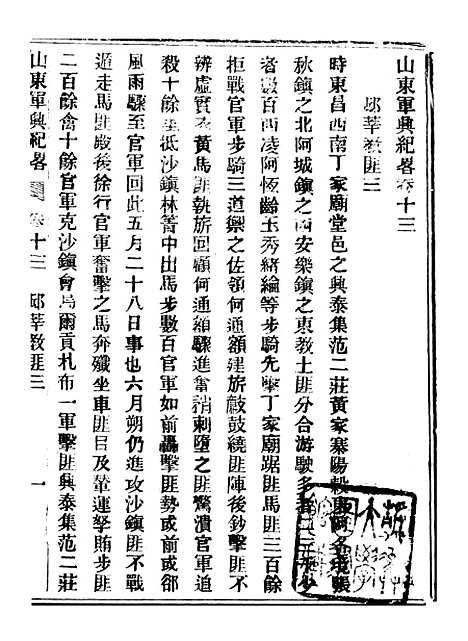 山東軍興紀畧卷十三
邱莘教匪三
時東昌西南丁家廟堂邑之興泰集范二莊黃家寨陽穀
秋鎮之北阿城鎮之西安樂鎮之東教土匪分合游駛多者二三千少
者數百西凌阿恆齡玉秀緒綸等步騎先擊丁家廟踞匪馬匪三百餘
拒戰官軍步騎三道禦之佐領何通額建旂鼓鼓繞匪陣後鈔擊匪不
辨虛實衣黃馬匪執旂回顧何通額驟進奮矟刺墮之匪驚潰官軍追
殺十餘里抵沙鎮林箐中出馬步數百官軍如前轟擊匪勢或前或郤
風雨驟至官軍回此五月二十八日事也六月朔仍進攻沙鎮匪不戰
遁走馬匪殿後徐行官軍奮擊之馬奔殲坐車匪目及輦運孥賄步匪
二百餘禽十餘官軍克沙鎮會馬爾貢札布一軍擊匪興泰集范二莊
山東軍興紀畧 卷十三 邱莘教匪三 一